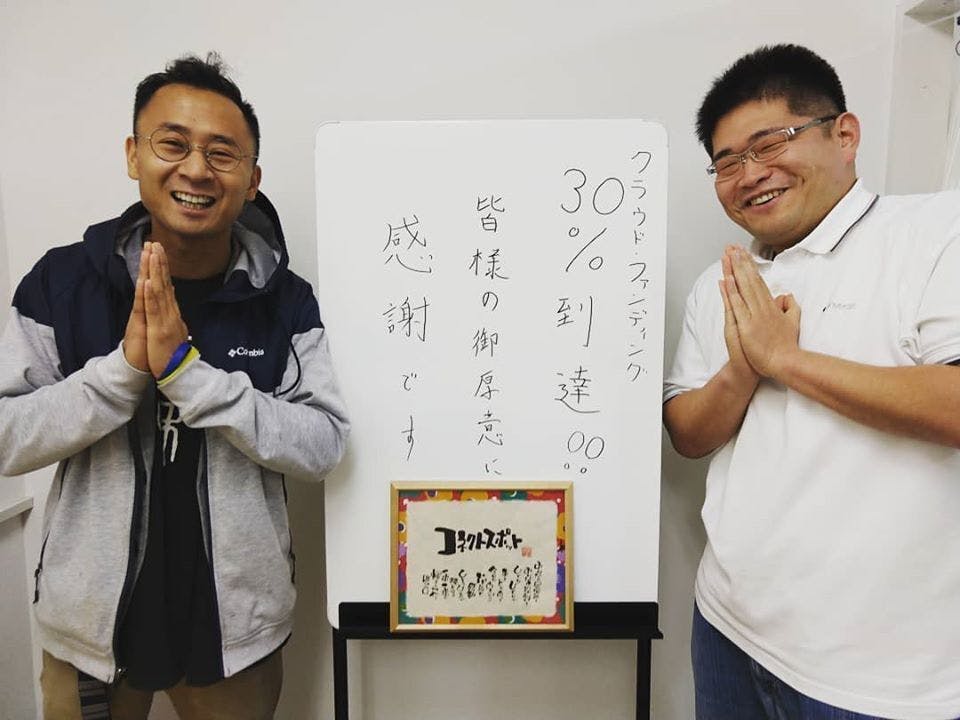 クラウド・ファンディング
30%到達!!
皆様の御厚意に
感謝です
コネクトスポット
Columbia